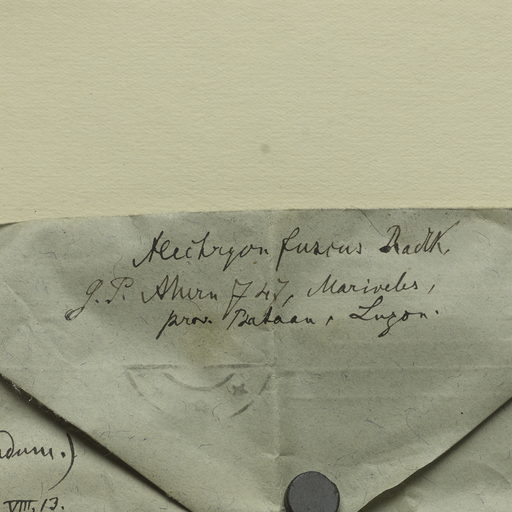 Alectryon fuscus Radlk.
G. P. Ahern 747, Mariveles,
prov. Bataan, Luzon.
dum.)
VIII. 13.